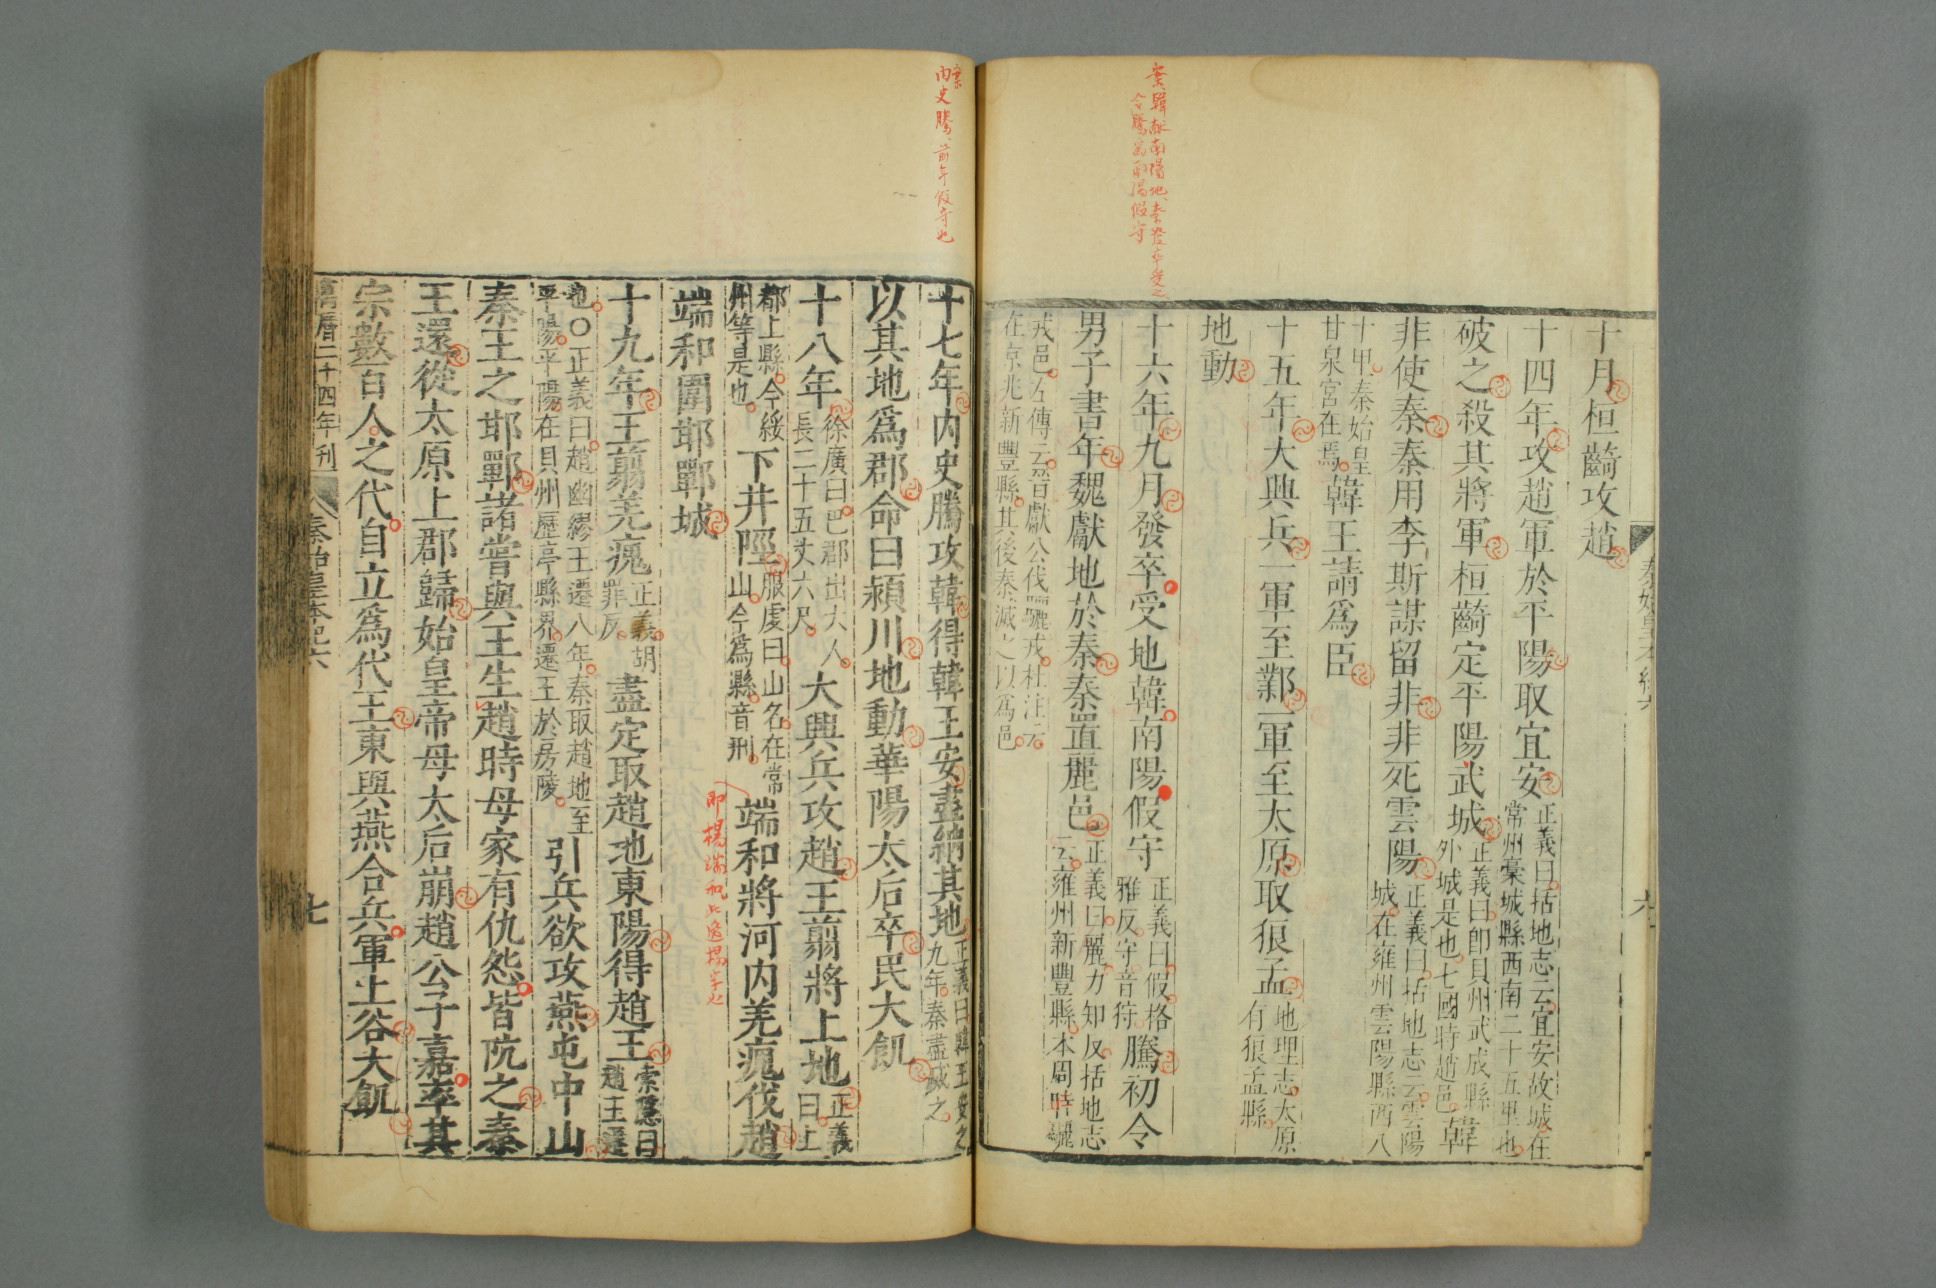 案韓献南陽地秦發卒受之
令騰為南陽假守
秦始皇本紀六
六
十月桓齮攻趙
十四年攻趙軍於平陽取宜安正義曰括地志云宜安故城在常州稾城縣西南二十五里也
破之殺其將軍桓齮定平陽武城正義曰即貝州武成縣外城是也七國時趙邑韓
非使秦秦用李斯謀留非非死雲陽正義曰括地志云雲陽城在雍州雲陽縣西八
十甲秦始皇甘泉宮在焉韓王請爲臣
十五年大興兵一軍至鄴一軍至太原取狼孟地理志太原有狼孟縣
地動
十六年九月發卒受地韓南陽假守正義曰假格雅反守音狩騰初令
男子書年魏獻地於秦秦置麗邑正義曰麗力知反括地志云雍州新豐縣本周時驪
戎邑左傳云晉獻公伐驪戎杜注云在京兆新豐縣其後秦滅之以爲邑
案內史騰前年假守也
十七年内史騰攻韓得韓王安盡納其地正義曰韓王安之九年秦盡滅之
以其地爲郡命曰潁川地動華陽太后卒民大飢
十八年徐廣曰巴郡出大人長二十五丈六尺大興兵攻趙王翦將上地正義曰上
郡上縣今綏州等是也下井陘服虔曰山名在常山今爲縣音刑端和將河内羌瘣伐趙
即楊端和此逸楊字也
端和圍邯鄲城
十九年王翦羌瘣正義胡罪反盡定取趙地東陽得趙王索隱曰趙王遷
也○正義曰趙幽繆王遷八年秦取趙地至平陽平陽在貝州歷亭縣界遷王於房陵引兵欲攻燕屯中山
秦王之邯鄲諸嘗與王生趙時母家有仇怨皆阬之秦
王還從太原上郡歸始皇帝母太后崩趙公子嘉率其
宗數百人之代自立爲代王東與燕合兵軍上谷大飢
萬曆二十四年刊 秦始皇本紀六 七